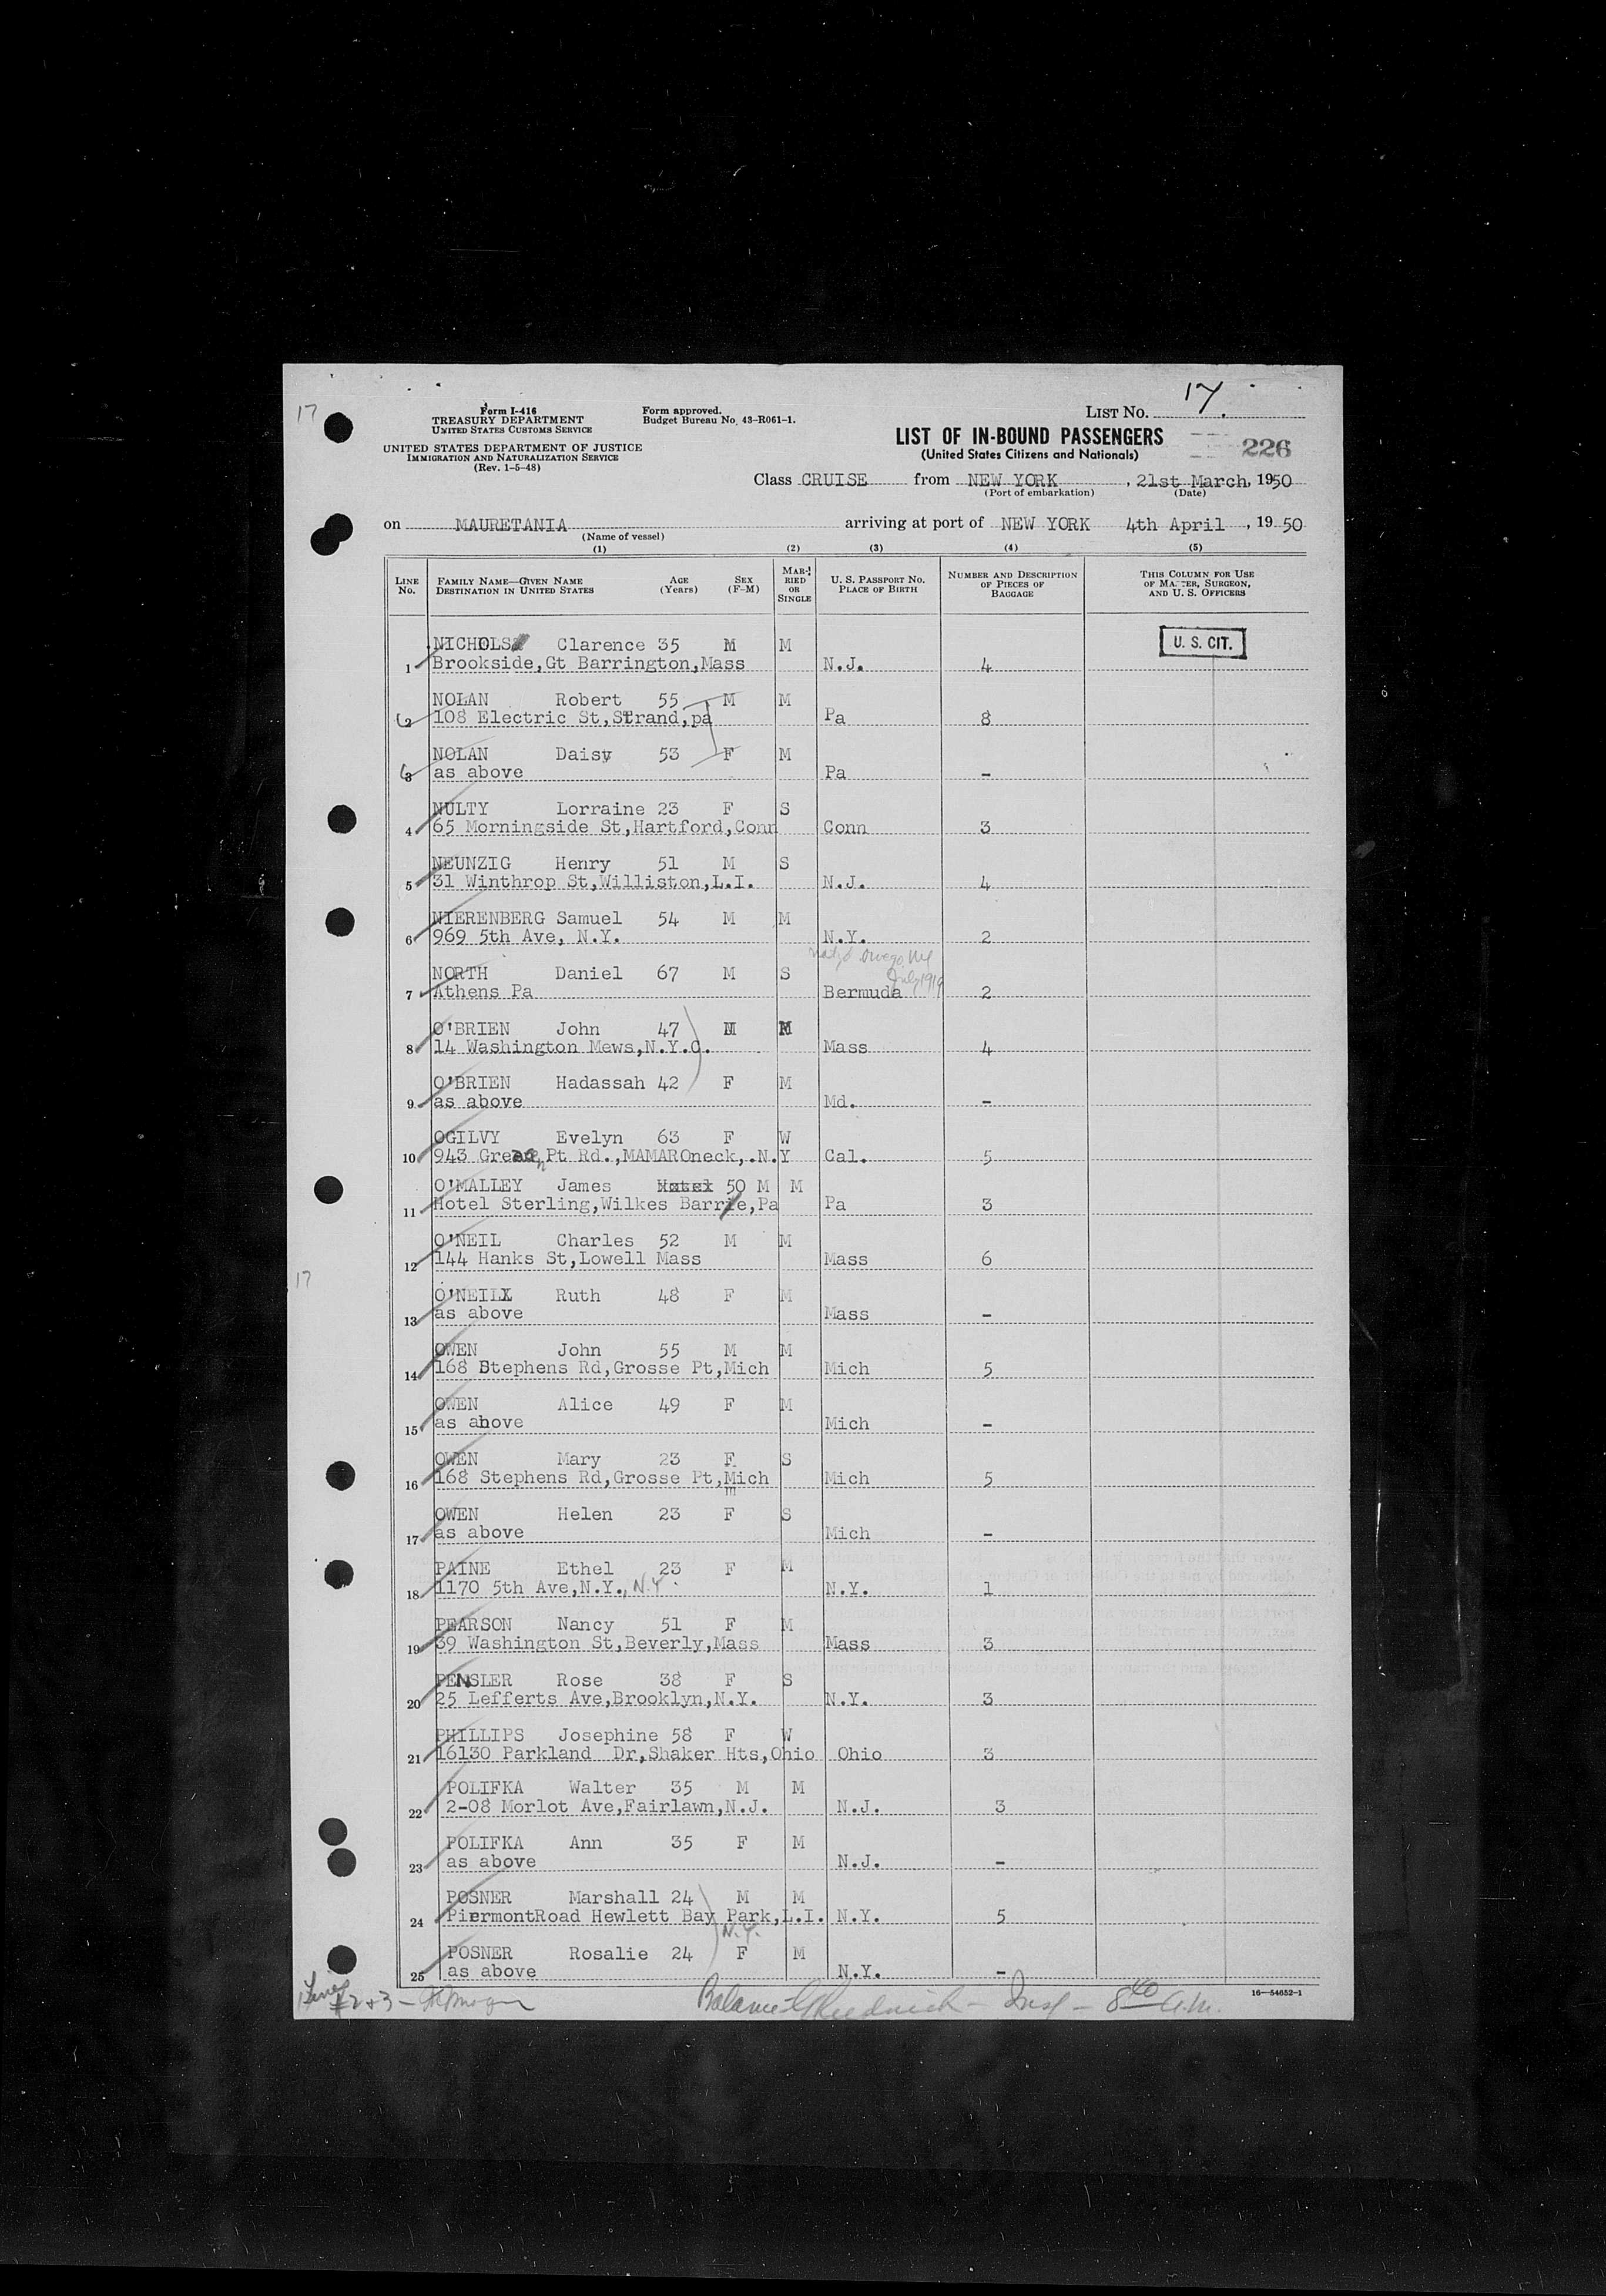 17
Form I-416
TREASURY DEPARTMENT
UNITED STATES CUSTOMS SERVICE
UNITED STATES DEPARTMENT OF JUSTICE
IMMIGRATION AND NATURALIZATION SERVICE
(Rev. 1-5-48)
Form approved.
Budget Bureau No. 43-R061-1.
LIST No. 17.
LIST OF IN-BOUND PASSENGERS
(United States Citizens and Nationals)
226
Class CRUISE from NEW YORK, 21st March, 1950
(Port of embarkation) (Date)
on MAURETANIA arriving at port of NEW YORK 4th April, 1950
(Name of vessel)
(1) (2) (3) (4) (5)
LINE No. FAMILY NAME—GIVEN NAME DESTINATION IN UNITED STATES AGE (Years) SEX (F-M) MARRIED OR SINGLE U. S. PASSPORT No. PLACE OF BIRTH NUMBER AND DESCRIPTION OF PIECES OF BAGGAGE THIS COLUMN FOR USE OF MASTER, SURGEON, AND U. S. OFFICERS
NICHOLS Clarence 35 M M U. S. CIT.
1 Brookside,Gt Barrington,Mass N.J. 4
NOLAN Robert 55 M M
2 108 Electric St,Strand,pa Pa 8
NOLAN Daisy 53 F M
3 as above Pa -
NULTY Lorraine 23 F S
4 65 Morningside St,Hartford,Conn Conn 3
NEUNZIG Henry 51 M S
5 31 Winthrop St,Williston,L.I. N.J. 4
NIERENBERG Samuel 54 M M
6 969 5th Ave, N.Y. N.Y. 2
Natzd Owego, NY
July 1919
NORTH Daniel 67 M S
7 Athens Pa Bermuda 2
O'BRIEN John 47 M M
8 14 Washington Mews,N.Y.C. Mass 4
O'BRIEN Hadassah 42 F M
9 as above Md. -
OGILVY Evelyn 63 F W
10 943 Green Pt Rd.,MAMAROneck,.N.Y Cal. 5
O'MALLEY James Hotel 50 M M
11 Hotel Sterling,Wilkes Barrie,Pa Pa 3
O'NEIL Charles 52 M M
12 144 Hanks St,Lowell Mass Mass 6
17
O'NEIL Ruth 48 F M
13 as above Mass -
OWEN John 55 M M
14 168 Stephens Rd,Grosse Pt,Mich Mich 5
OWEN Alice 49 F M
15 as above Mich -
OWEN Mary 23 F S
16 168 Stephens Rd,Grosse Pt,Mich Mich 5
m
OWEN Helen 23 F S
17 as above Mich -
PAINE Ethel 23 F M
18 1170 5th Ave,N.Y., N.Y. N.Y. 1
PEARSON Nancy 51 F M
19 39 Washington St,Beverly,Mass Mass 3
PENSLER Rose 38 F S
20 25 Lefferts Ave,Brooklyn,N.Y. N.Y. 3
PHILLIPS Josephine 58 F W
21 16130 Parkland Dr,Shaker Hts,Ohio Ohio 3
POLIFKA Walter 35 M M
22 2-08 Morlot Ave,Fairlawn,N.J. N.J. 3
POLIFKA Ann 35 F M
23 as above N.J. -
POSNER Marshall 24 M M
24 PiermontRoad Hewlett Bay Park,L.I. N.Y. 5
N.Y.
POSNER Rosalie 24 F M
25 as above N.Y. -
16—54652-1
Lines
#2+3 -
Balance - Insp - 8 40 A.M.